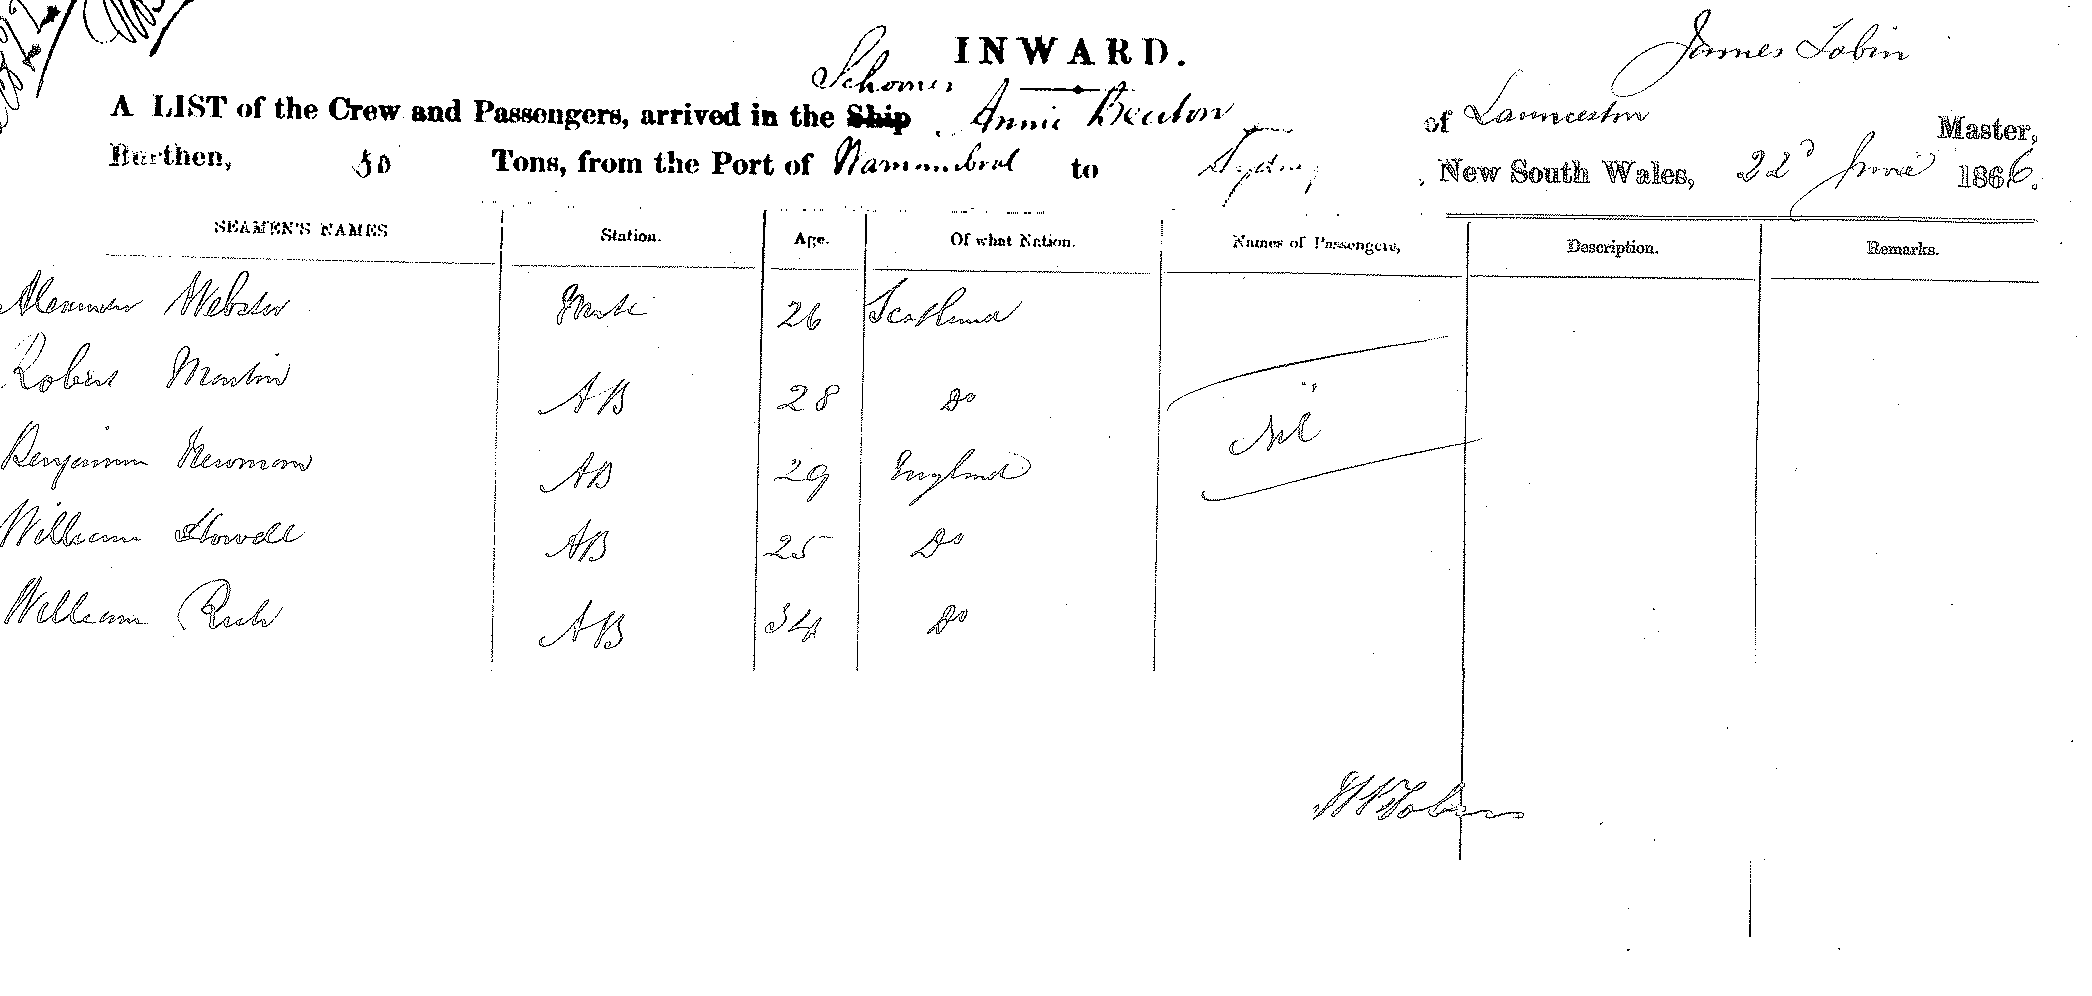 INWARD.
James Tobin
Schooner
A LIST of the Crew and Passengers, arrived in the Ship Annie Beaton of Launceston Master,
Burthen, 50 Tons, from the Port of to Sydney, New South Wales, 22d June 1866.
SEAMEN'S NAMES Station. Age. Of what Nation. Names of Passengers, Description. Remarks.
Alexander Webster Mate 26 Scotland
Robert Martin AB 28 Do
Nil
Benjamin Newman AB 29 England
William Howell AB 25 Do
William Rush AB 34 Do
Tobin